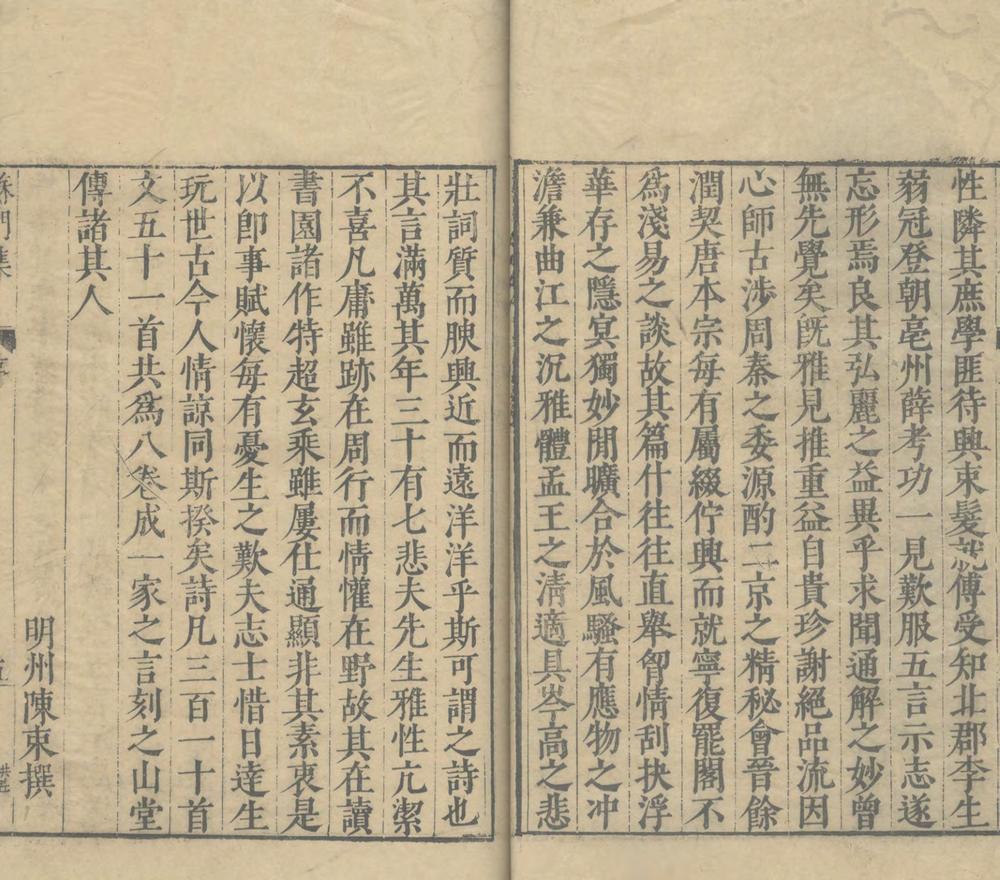 性隣其庶學匪待興束髮就傅受知北郡李生
弱冠登朝亳州薛考功一見歎服五言示志遂
忘形焉良其弘麗之益異乎求聞通解之妙曾
無先覺矣旣雅見推重益自貴珍謝絕品流因
心師古涉周秦之委源酌二京之精秘會晉餘
潤契唐本宗每有屬綴佇興而就寧復罷閣不
爲淺易之談故其篇什往往直舉胷情刮抉浮
華存之隱㝠獨妙閒曠合於風騷有應物之冲
澹兼曲江之沉雅體孟王之淸適具岑高之悲
壯詞質而腴興近而遠洋洋乎斯可謂之詩也
其言滿萬其年三十有七悲夫先生雅性亢潔
不喜凡庸雖跡在周行而情懽在野故其在讀
書園諸作特超玄乘雖屢仕通顯非其素衷是
以卽事賦懷每有憂生之歎夫志士惜日達生
玩世古今人情諒同斯揆矣詩凡三百一十首
文五十一首共爲八卷成一家之言刻之山堂
傳諸其人
明州陳束撰
蘇門集 序 五